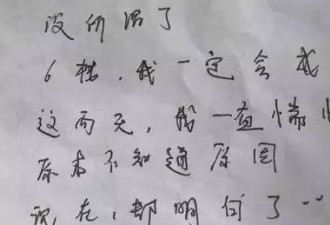 没价值了
6楼，我一定会成
这两天，我一直惴惴
原本不知道原因
现在，都明白了…